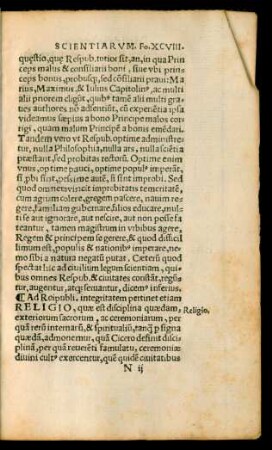 SCIENTIARVM. Fo. XCVIII.
quæstio, quæ Respub. totior sit, an, in qua Prin
ceps malus & consiliarij boni, siue vbi prin
ceps bonus, probusq;, sed cōsiliarij praui: Ma
rius, Maximus & Iulius Capitolin⁹, ac multi
alij priorem eligūt, quib⁹ tamē alij multi gra
ues authores nō adsentiūt, cū experiētia ipsa
videamus sæpius a bono Principe malos cor
rigi, quam malum Principē a bonis emēdari.
Tandem vero vt Respub. optime administre/
tur, nulla Philosophia, nulla ars, nulla sciētia
præstant, sed probitas rectorū. Optime enim
vnus, optime pauci, optime popul⁹ imperāt,
si probi sint, pessime autē, si sint improbi. Sed
quod omnem vincit improbitatis temeritatē,
cum agrum colere, gregem pascere, nauim re/
gere, familiam gubernare, filios educare, mul/
ti se aut ignorare, aut nescire, aut non posse fa
teantur, tamen magistrum in vrbibus agere,
Regem & principem se gerere, & quod difficil
limum est, populis & nationib⁹ imperare, ne/
mo sibi a natura negatū putat. Cæterū quod
spectat hic ad ciuilium legum scientiam, qui/
bus omnes Respub. & ciuitates constāt, regū/
tur, augentur, atq; seruantur, dicem⁹ inferius.
¶ Ad Reipubli. integritatem pertinet etiam
RELIGIO, quæ est disciplina quædam,
Religio.
exteriorum sacrorum, ac ceremoniarum, per
quā rerū internarū, & spiritualiū, tanq̄ p signa
quædā, admonemur, quā Cicero definit disci/
plinā, per quā reuerēti famulatu, ceremoniæ
diuini cult⁹ exercentur, quē quidē ciuitatibus
N ij